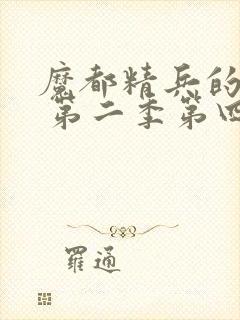 魔都精兵的
第二季第四
羅通